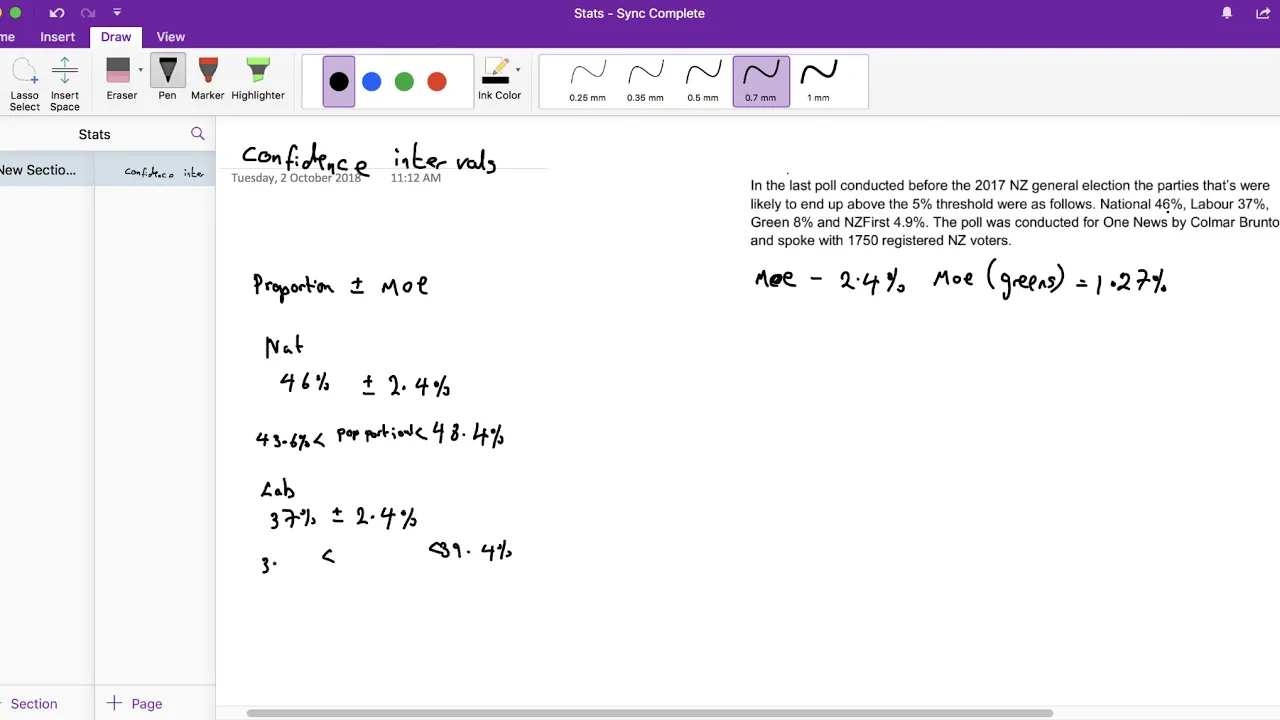 Stats - Sync Complete
me Insert Draw View
Lasso Select
Insert Space
Eraser
Pen
Marker
Highlighter
Ink Color
0.25 mm
0.35 mm
0.5 mm
0.7 mm
1 mm
Stats
New Sectio...
confidence inter
confidence intervals
Tuesday, 2 October 2018 11:12 AM
In the last poll conducted before the 2017 NZ general election the parties that's were
likely to end up above the 5% threshold were as follows. National 46%, Labour 37%,
Green 8% and NZFirst 4.9%. The poll was conducted for One News by Colmar Brunto
and spoke with 1750 registered NZ voters.
MoE - 2.4% MoE (greens) = 1.27%
Proportion ± MoE
Nat
46% ± 2.4%
43.6% < pop portion < 48.4%
Lab
37% ± 2.4%
3. < <39.4%
Section
+ Page